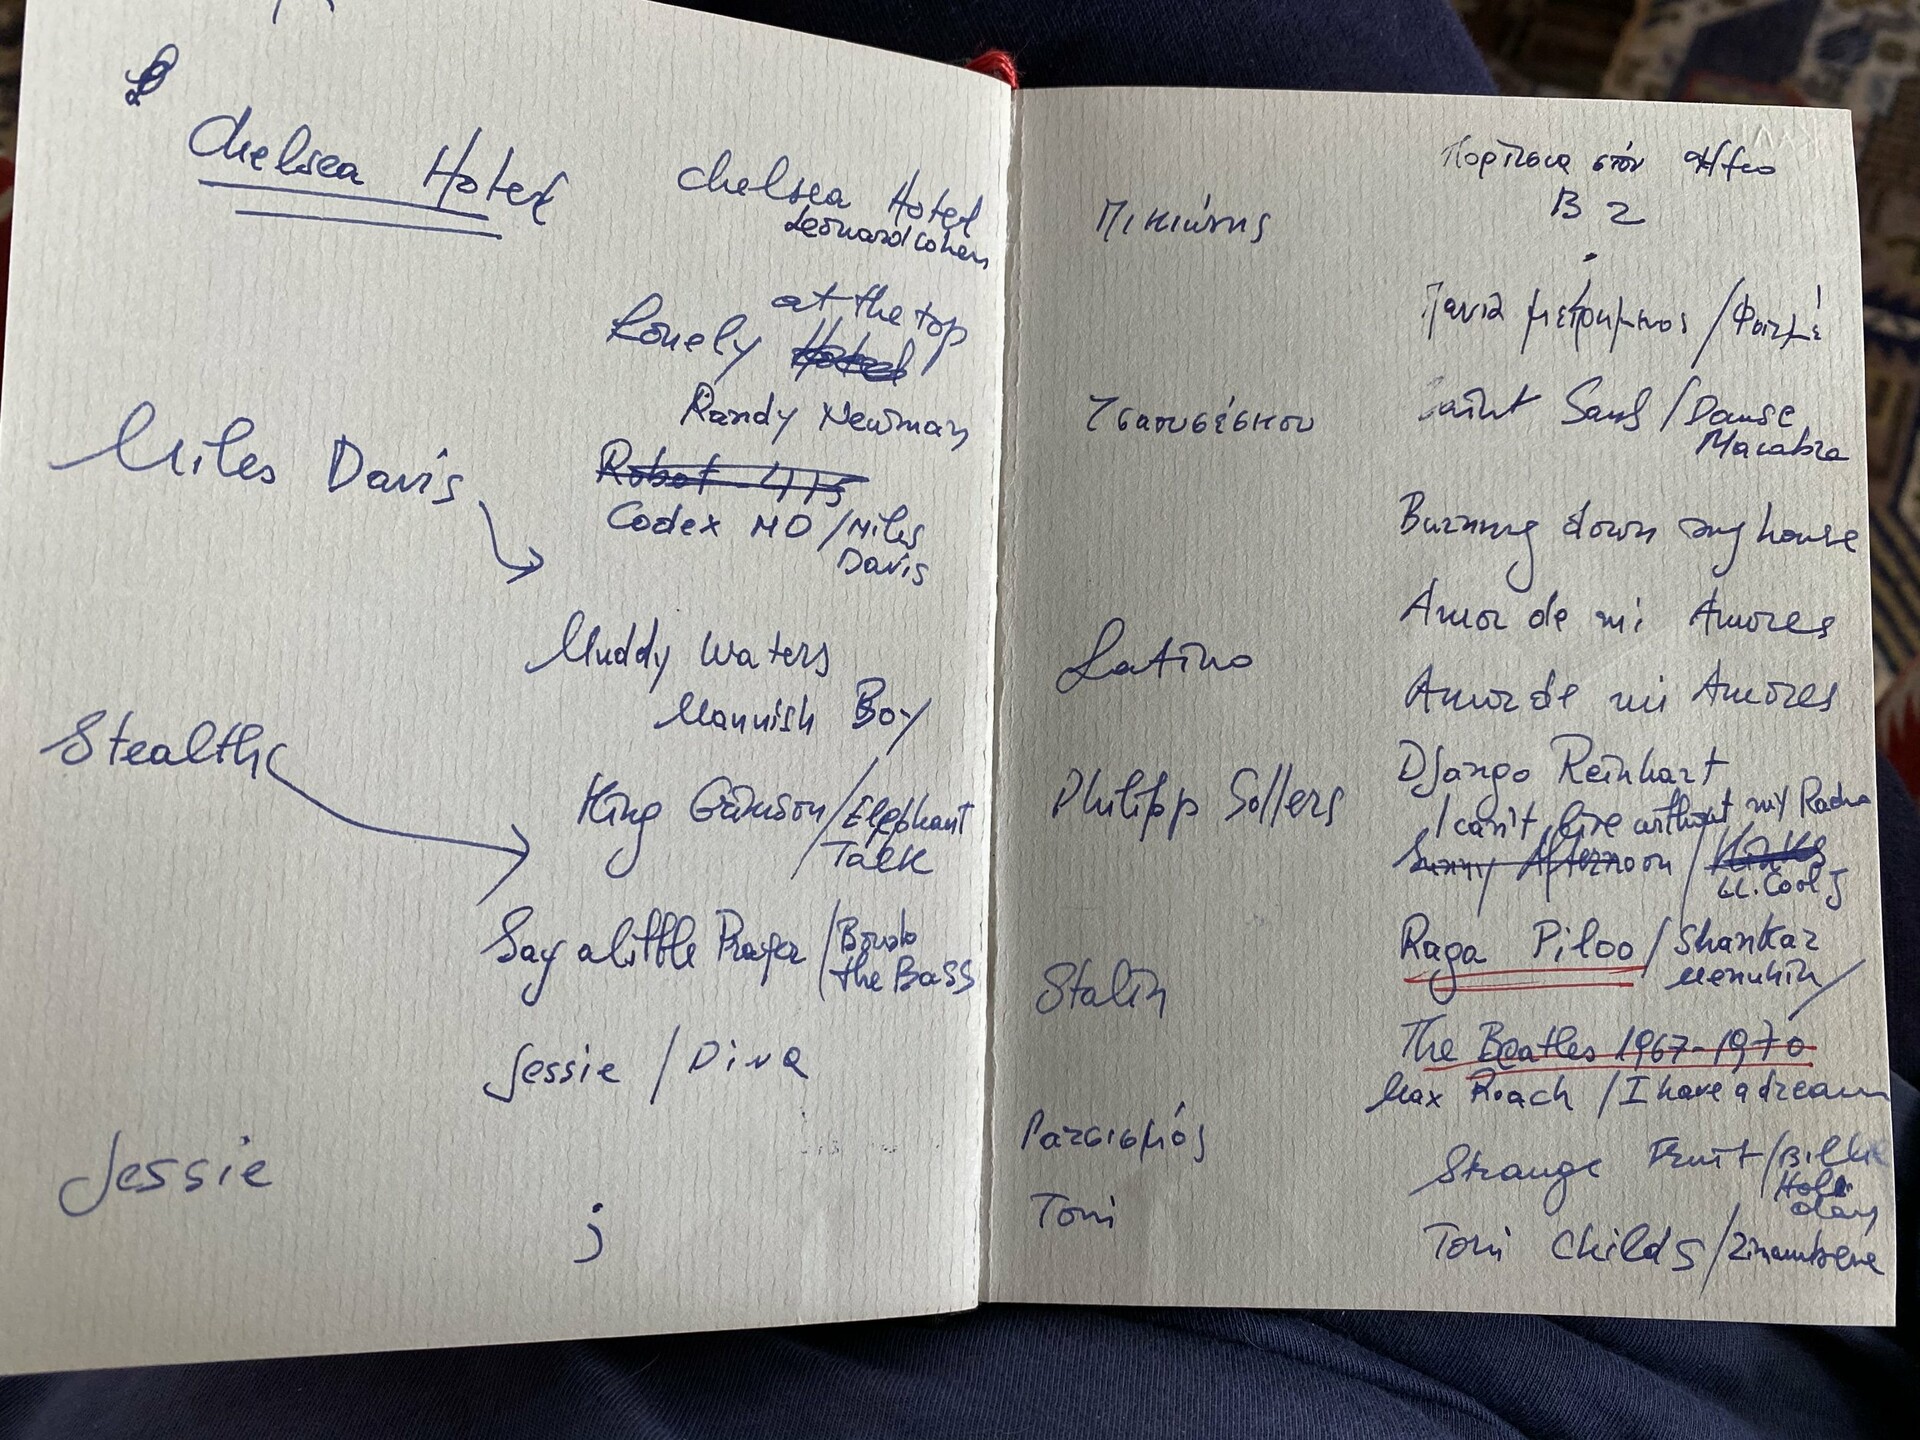 Chelsea Hotel
Chelsea Hotel
Leonard Cohen
at the top
Lonely Hotel
Randy Newman
Miles Davis
Robot 415
Codex MD / Miles
Davis
Muddy Waters
Mannish Boy
Stealth
King Crimson / Elephant
Talk
Say a little Prayer / Bomb
the Bass
Jessie / Diva
Jessie
j
Κορίτσια στόν Ήλιο
Πικιώνης
B 2
Φαιμέ
Τσαουσέσκου
Saint Sans / Danse
Macabre
Burning down my house
Amor de mi Amores
Latino
Amor de mi Amores
Philipp Sollers
Django Reinhart
I can't live without my Radio
Sunny Afternoon / Kinks
LL. Cool J
Raga Piloo / Shankar
Menuhin /
Stalin
The Beatles 1967-1970
Max Roach / I have a dream
Ρατσισμός
Strange Fruit / Billie
Holi
day
Toni
Toni Childs /